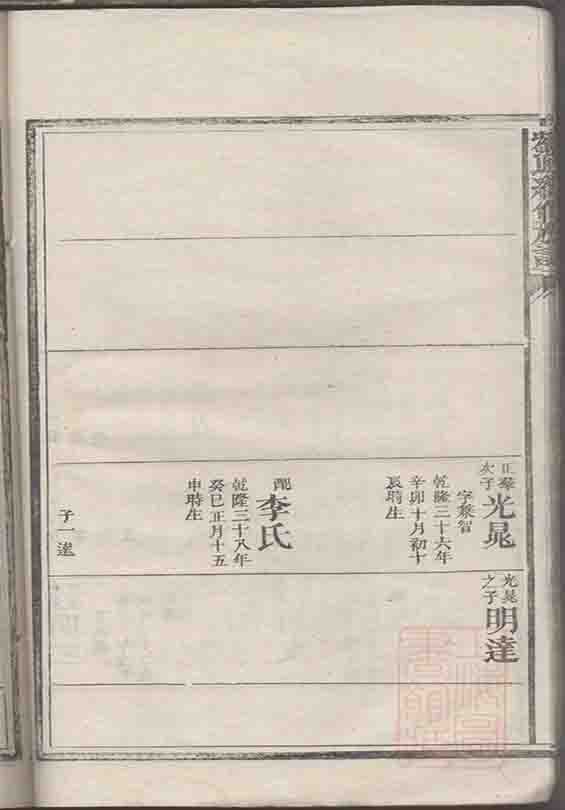 正舉次子
光晁
字黎智
乾隆三十六年
辛卯十月初十
辰時生
配
李氏
乾隆三十八年
癸巳正月十五
申時生
子一達
光晁之子
明達